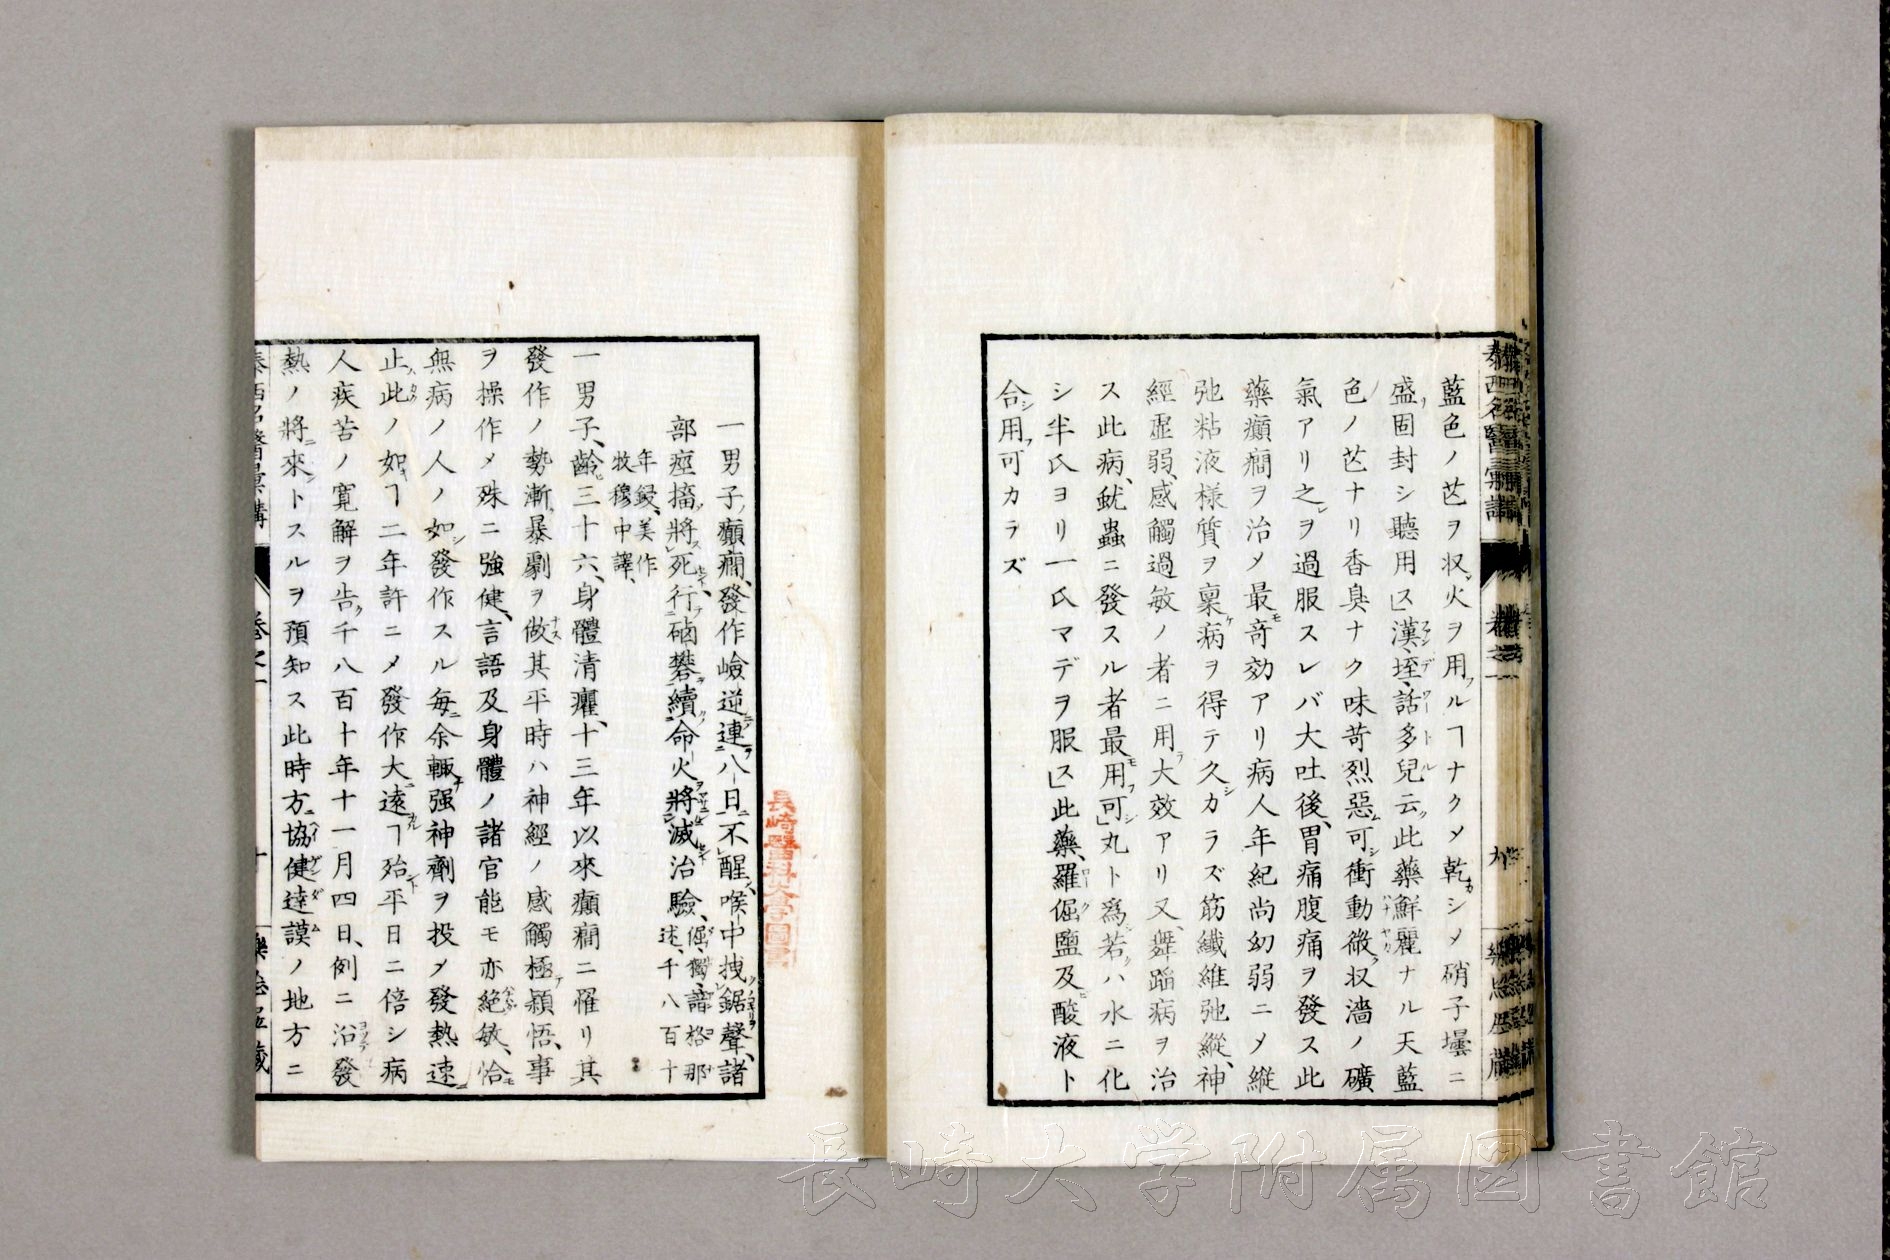 藍色ノ芒ヲ収火ヲ用ルヿナクメ乾シメ硝子壜ニ
盛固封シ聽用ス」漢垤話多兒云此藥鮮麗ナル天藍
色ノ芒ナリ香臭ナク味苛烈惡可衝動微収濇ノ礦
氣アリ之ヲ過服スレバ大吐後、胃痛腹痛ヲ發ス此
藥癲癇ヲ治メ最竒効アリ病人年紀尚幼弱ニメ縱
弛粘液様質ヲ稟病ヲ得テ久カラズ筋纖維弛縱、神
經虚弱、感觸過敏ノ者ニ用大效アリ又、舞蹈病ヲ治
ス此病、蚘蟲ニ發スル者最用可」丸ト為若ハ水ニ化
シ半氏ヨリ一氏マデヲ服ス」此藥、羅倔鹽及酸液ト
合用可カラズ
一男子癲癇、發作嶮逆連八日不醒喉中拽鋸聲、諸
部痙搐將死行硇礬續命火將滅治驗、倔獨諳格那
述、千八百十
年鋟、美作
牧穆中譯、
一男子、齢三十六、身體清癯、十三年以來癲癇ニ罹リ其
發作ノ勢漸暴劇ヲ做其平時ハ神經ノ感觸極穎悟、事
ヲ操作メ殊ニ強健、言語及身體ノ諸官能モ亦絶敏、恰
無病ノ人ノ如發作スル毎余輙强神劑ヲ投メ發熱速
止此ノ如ヿ二年許ニメ發作大遠ヿ殆平日ニ倍シ病
人疾苦ノ寛解ヲ告千八百十年十一月四日、例ニ沿發
熱ノ將來トスルヲ預知ス此時方協健達謨ノ地方ニ
泰西名醫彙講
長崎醫科大學圖書
長崎大学附属図書館